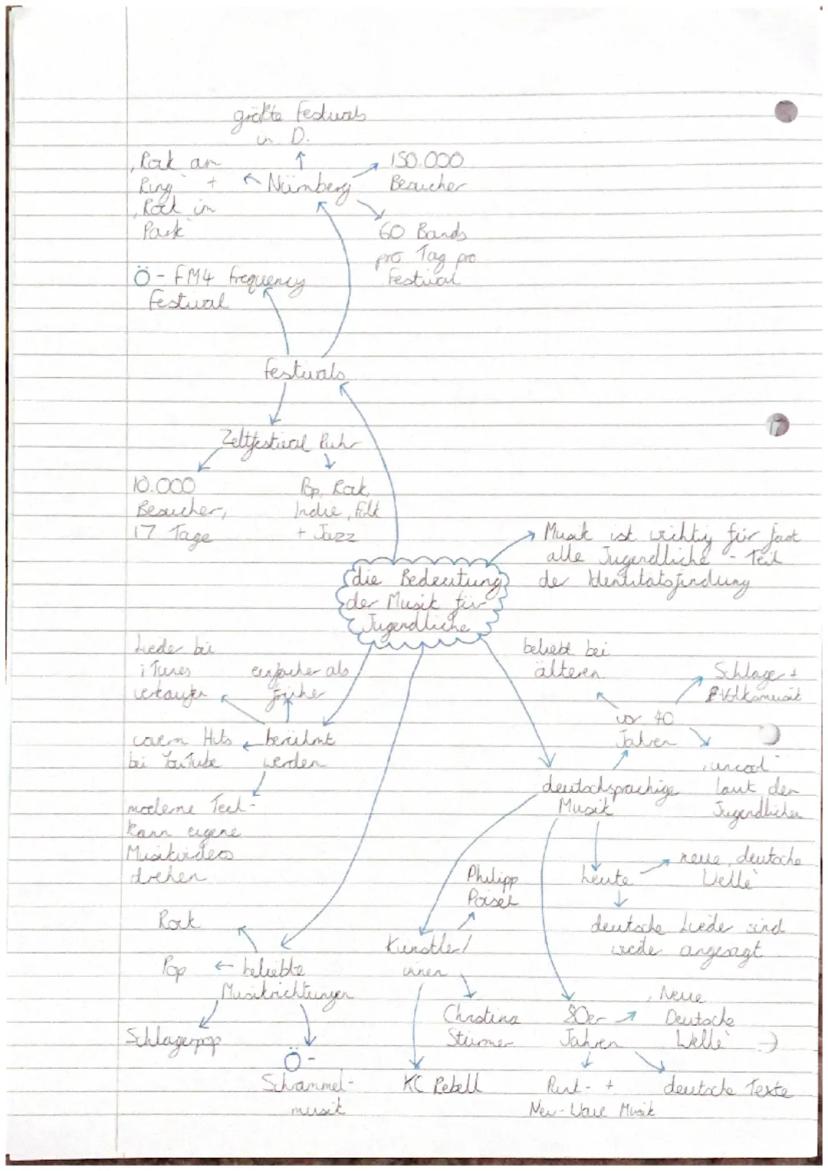 größte Festivals
in D.
‚Rock am
Ring' +
‚Rock im
Park'
Nürnberg
150.000
Besucher
60 Bands
pro Tag pro
Festival
Ö - FM4 Frequency
Festival
Festivals
Zeltfestival Ruhr
10.000
Besucher,
17 Tage
Pop, Rock,
Indie, Folk
+ Jazz
Musik ist wichtig für fast
alle Jugendliche - Teil
der Identitätsfindung
die Bedeutung
der Musik für
Jugendliche
Lieder bei
iTunes
verkaufen
einfacher als
früher
covern Hits
bei YouTube
berühmt
werden
moderne Tech-
kann eigene
Musikvideos
drehen
beliebt bei
älteren
Schlager +
Volksmusik
vor 40
Jahren
‚uncool'
laut der
Jugendlicher
deutschsprachige
Musik
heute
neue, deutsche
Welle'
deutsche Lieder sind
wieder angesagt
Philipp
Poisel
Künstler/
innen
Christina
Stürmer
KC Rebell
80er
Jahren
‚Neue
Deutsche
Welle'
Punk- +
New-Wave Musik
deutsche Texte
Rock
Pop
beliebte
Musikrichtungen
Schlagerpop
Ö-
Schrammel-
musik